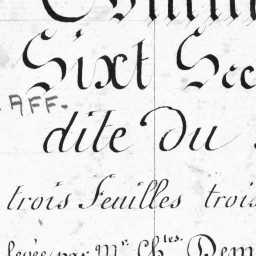 Sixt
AFF.
dite du
trois feuilles trois
levée par Mr. Ch.tes. Dem